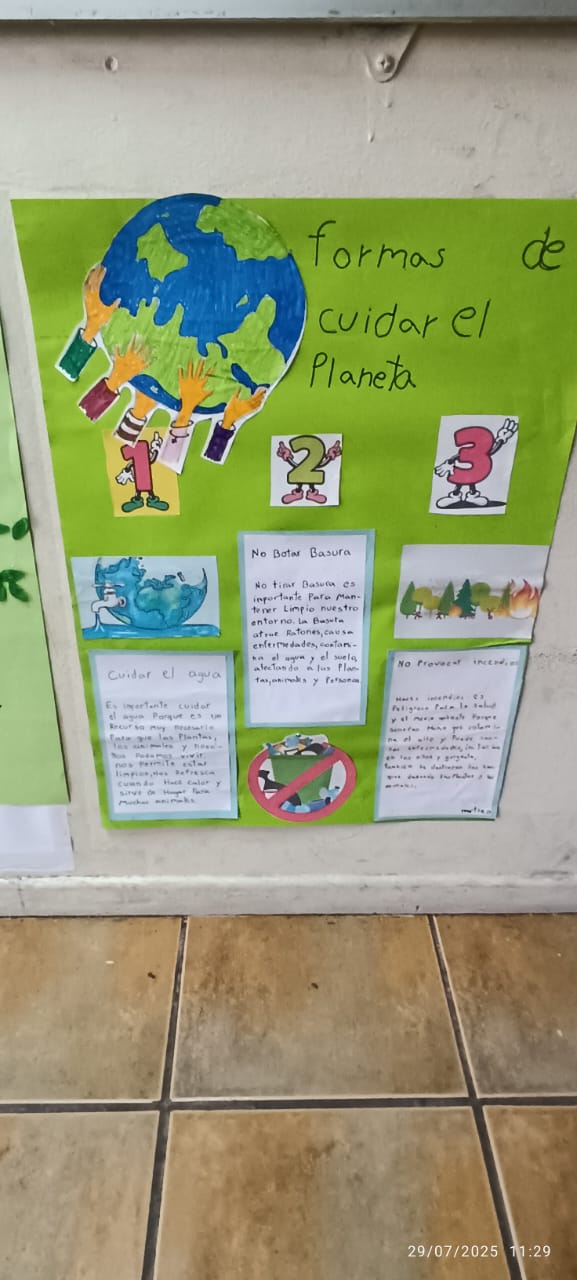 formas de
cuidar el
Planeta
1
2
3
No Botar Basura
No tirar Basura es
importante Para Man-
tener Limpio nuestro
entorno. La Basura
atrae Ratones, causa
enfermedades, contami-
na el agua y el suelo,
afectando a las Plan-
tas, animales y Personas
Cuidar el agua
Es importante cuidar
el agua Porque es un
Recurso muy necesario
Para que las Plantas,
los animales y noso-
tros Podamos vivir.
nos Permite estar
limpios, nos Refresca
cuando Hace calor y
sirve de Hogar Para
Muchos animales.
No Provocar incendios
Hacer incendios es
Peligroso Para la salud
y el medio ambiente Porque
Humo que contami-
na el aire y Puede
enfermedades, en
en los ojos y garganta,
también
animales.
29/07/2025 11:29